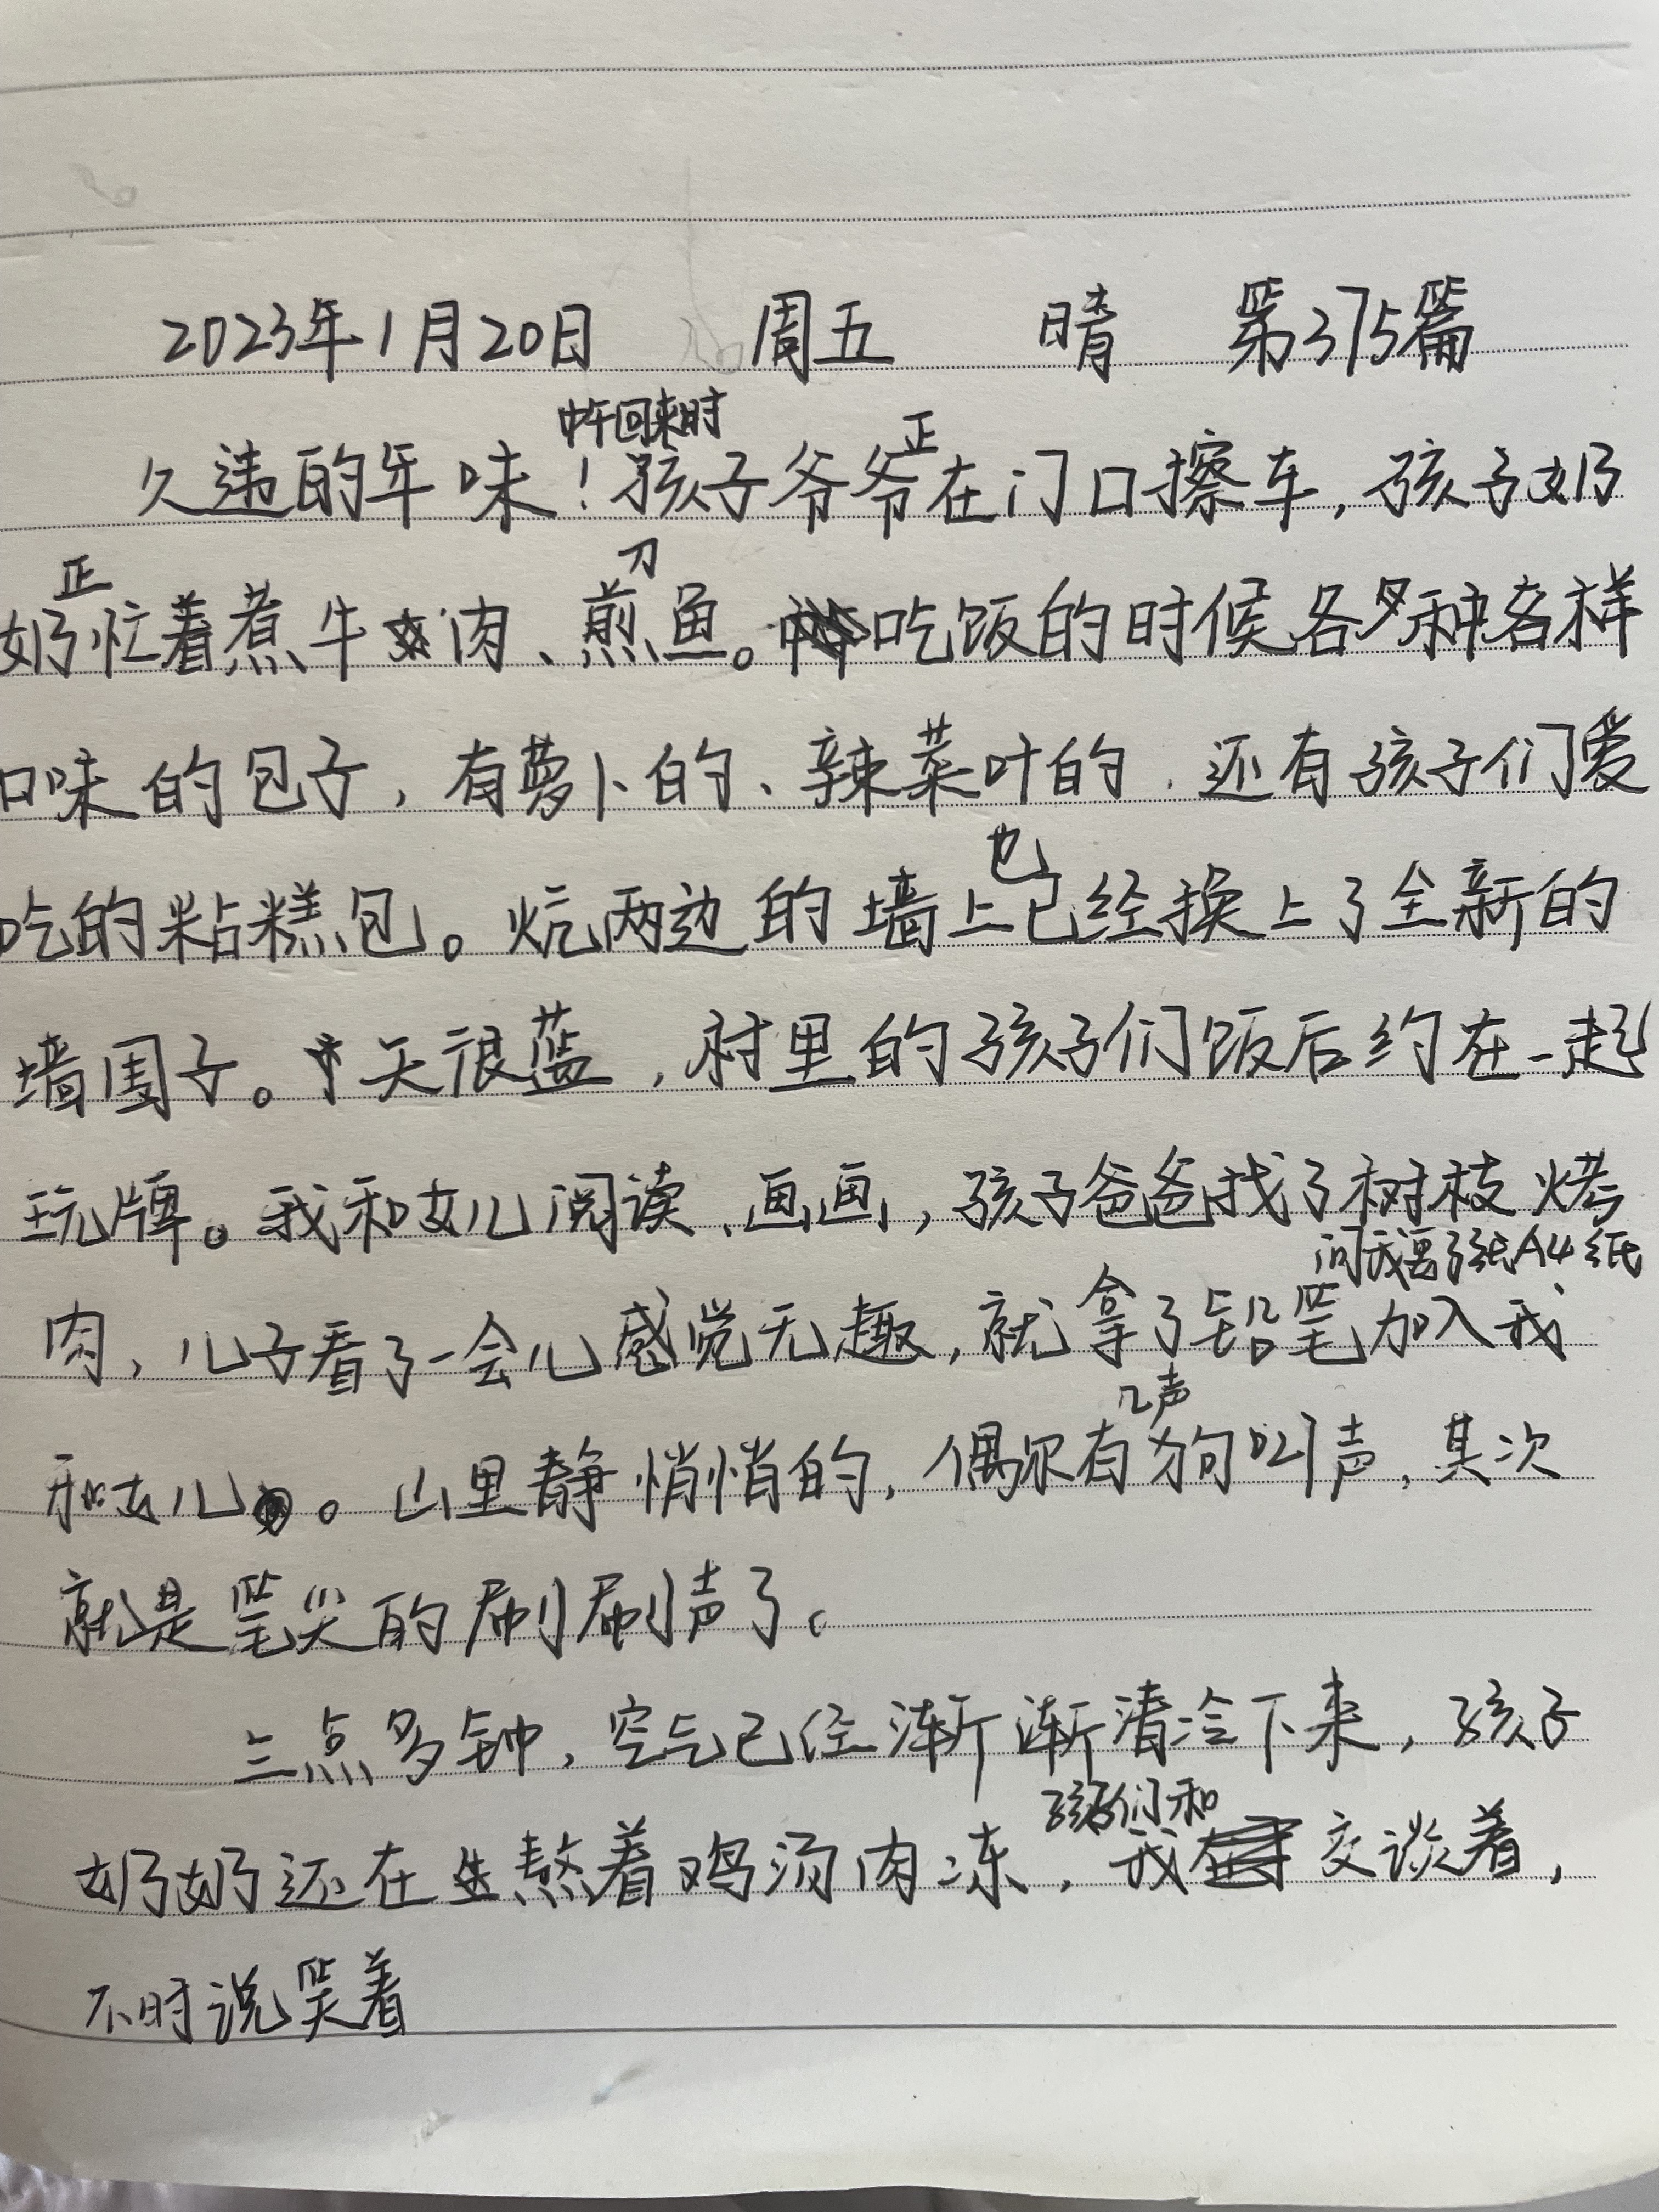 2023年1月20日 周五 晴 第375篇
中午回来时
久违的年味！孩子爷爷正在门口擦车，孩子奶
奶正忙着煮牛肉、煎刀鱼。吃饭的时候各种各样
口味的包子，有萝卜的、辣菜叶的，还有孩子们爱
吃的粘糕包。炕两边的墙上也已经换上了全新的
墙围子。天很蓝，村里的孩子们饭后约在一起
玩牌。我和女儿阅读、画画，孩子爸爸找了树枝烤
问我要了张A4纸
肉，儿子看了一会儿感觉无趣，就拿了铅笔加入我
几声
和女儿。山里静悄悄的，偶尔有狗叫声，其次
就是笔尖的刷刷声了。
三点多钟，空气已经渐渐清冷下来，孩子
孩子们和
奶奶还在熬着鸡汤肉冻，我交谈着，
不时说笑着